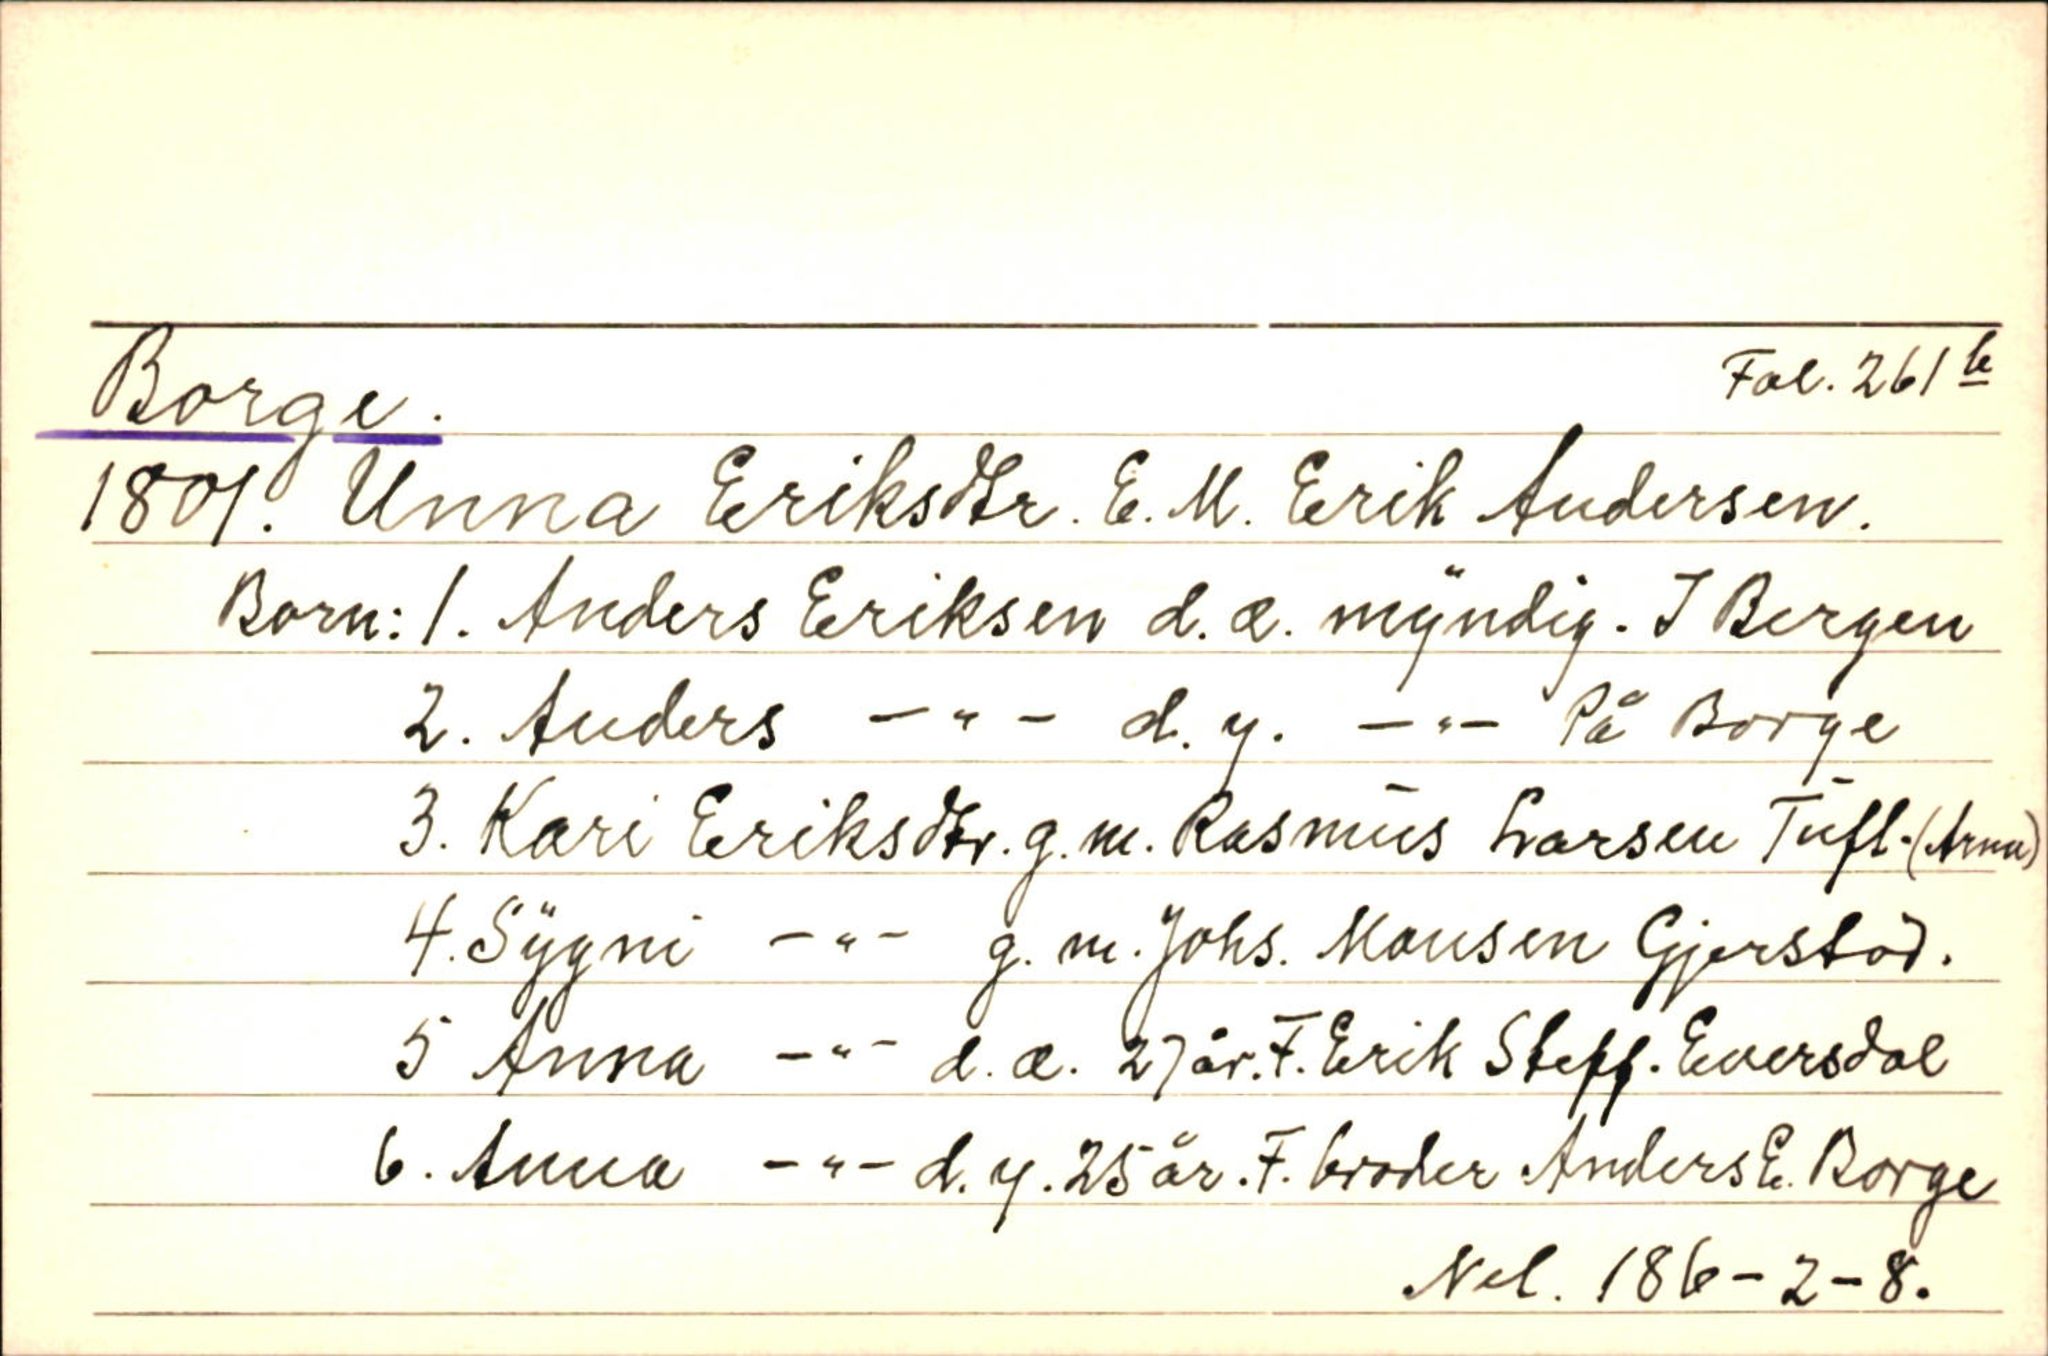 Borge. Fol. 261 b
1801. Unna Eriksdtr. E. M. Erik Andersen.
Born: 1. Anders Eriksen d. e. mÿndig. I Bergen
2. Anders —"— d. y. —"— På Borge
3. Kari Eriksdtr. g. m. Rasmus Larsen Tufl. (Arna)
4. Sÿgni —"— g. m. Johs. Monsen Gjerstad.
5 Anna —"— d. e. 27 år. F. Erik Steff. Eversdal
6. Anna —"— d. y. 25 år. F. broder Anders E. Borge
Nel. 186-2-8.